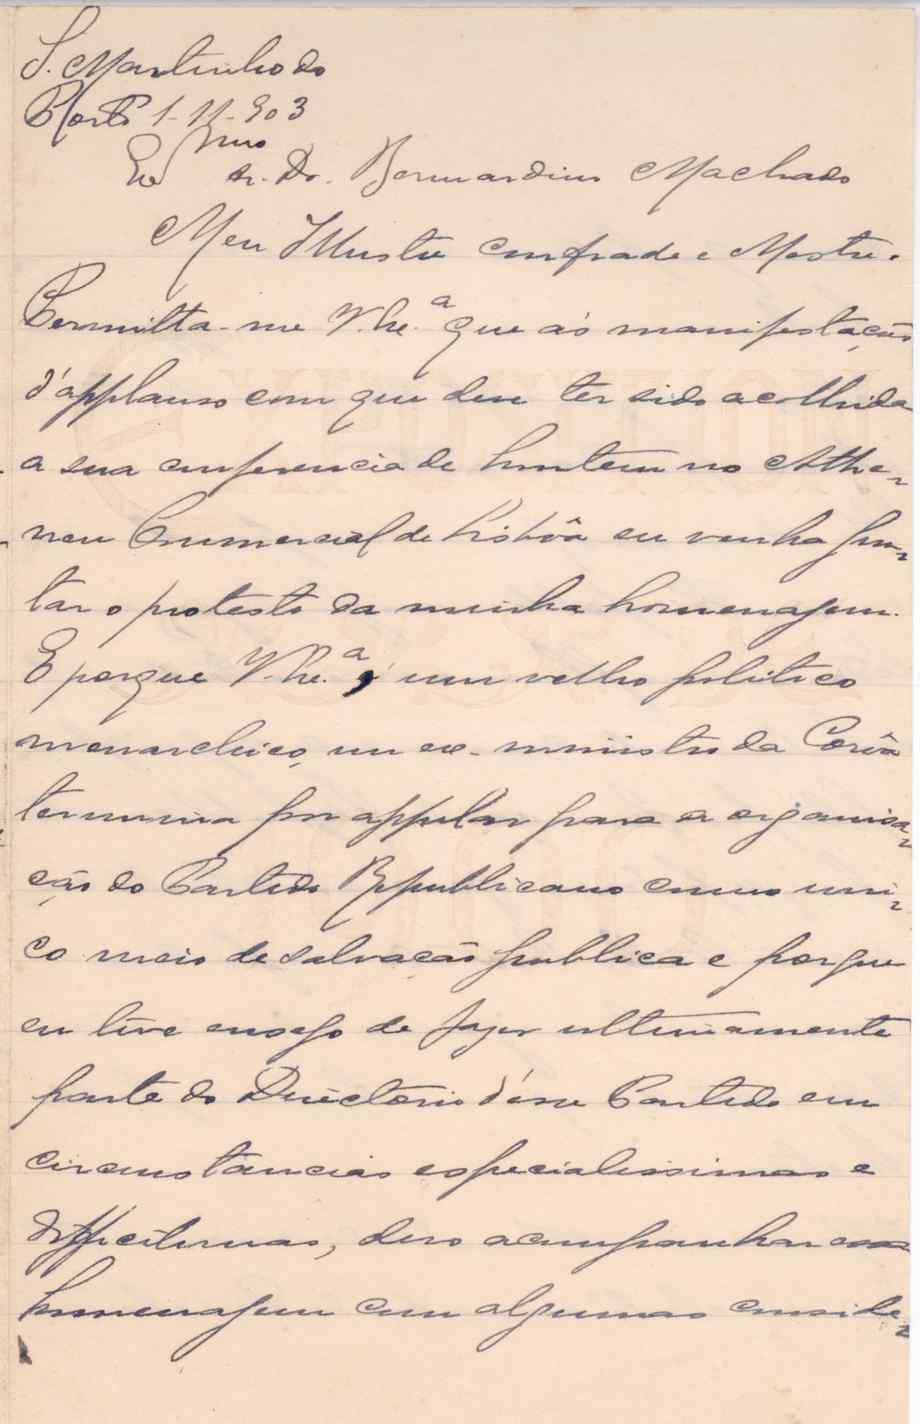 S. Martinho do
Porto 1-11-903
Exmo Sr. Dr. Bernardino Machado
Meu Illustre confrade e Mestre.
Permitta-me V. Ex.ª que ás manifestações
d'applauso com que deve ter sido acolhida
a sua conferencia de hontem no Athe-
neu Commercial de Lisbôa eu venha jun-
tar o protesto da minha homenagem.
E porque V. Ex.ª, um velho politico
monarchico, um ex-ministro da Corôa
termina por appellar para a organisa-
ção do Partido Republicano como uni-
co meio de salvação publica e porque
eu tive ensejo de fazer ultimamente
parte do Directorio d'esse Partido em
circunstancias especialissimas e
difficilimas, devo acompanhar essa
homenagem com algumas conside-